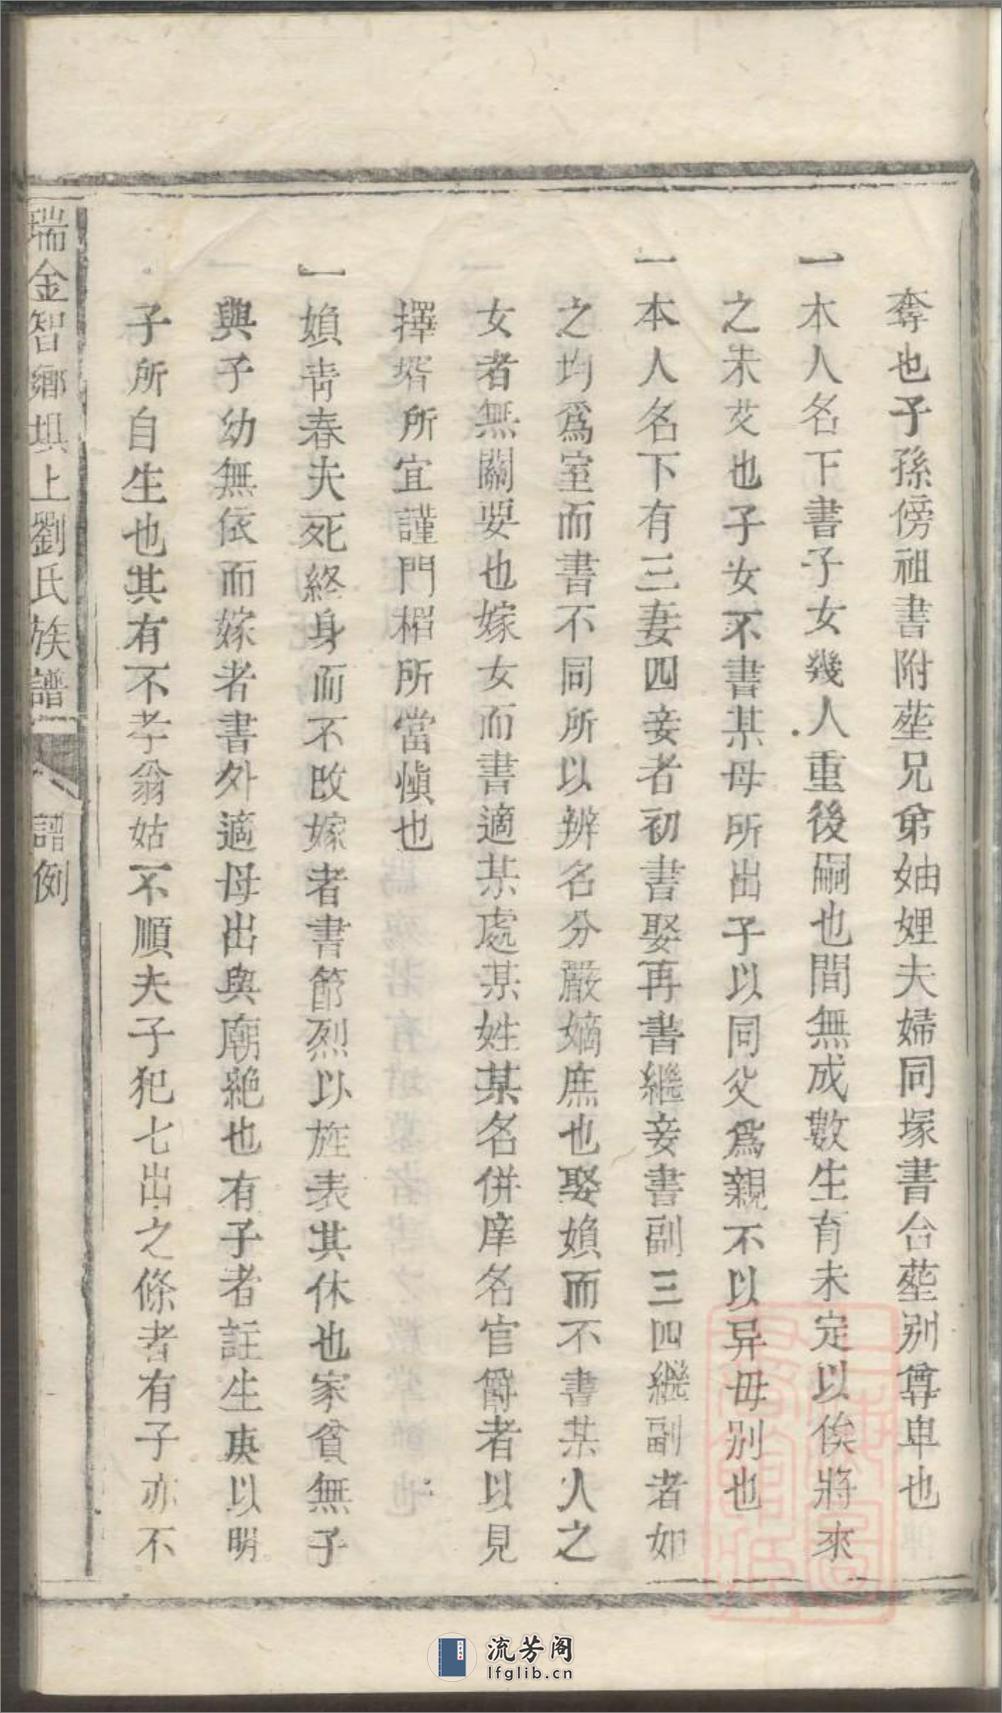 奪也子孫傍祖書附塟兄弟妯娌夫婦同塚書合塟别尊卑也
一本人名下書子女幾人重後嗣也間無成數生育未定以俟將來
之未艾也子女不書某母所出子以同父爲親不以异母别也
一本人名下有三妻四妾者初書娶再書繼妾書副三四繼副者如
之均爲室而書不同所以辨名分嚴嫡庶也娶媍而不書某人之
女者無關要也嫁女而書適某處某姓某名併庠名官爵者以見
擇壻所宜謹門楣所當慎也
一媍靑春夫死終身而不改嫁者書節烈以旌表其休也家貧無子
與子幼無依而嫁者書外適母出與廟絶也有子者註生庚以明
子所自生也其有不孝翁姑不順夫子犯七出之條者有子亦不
瑞金智鄉垻上劉氏族譜 譜例
流芳阁
lfglib.cn